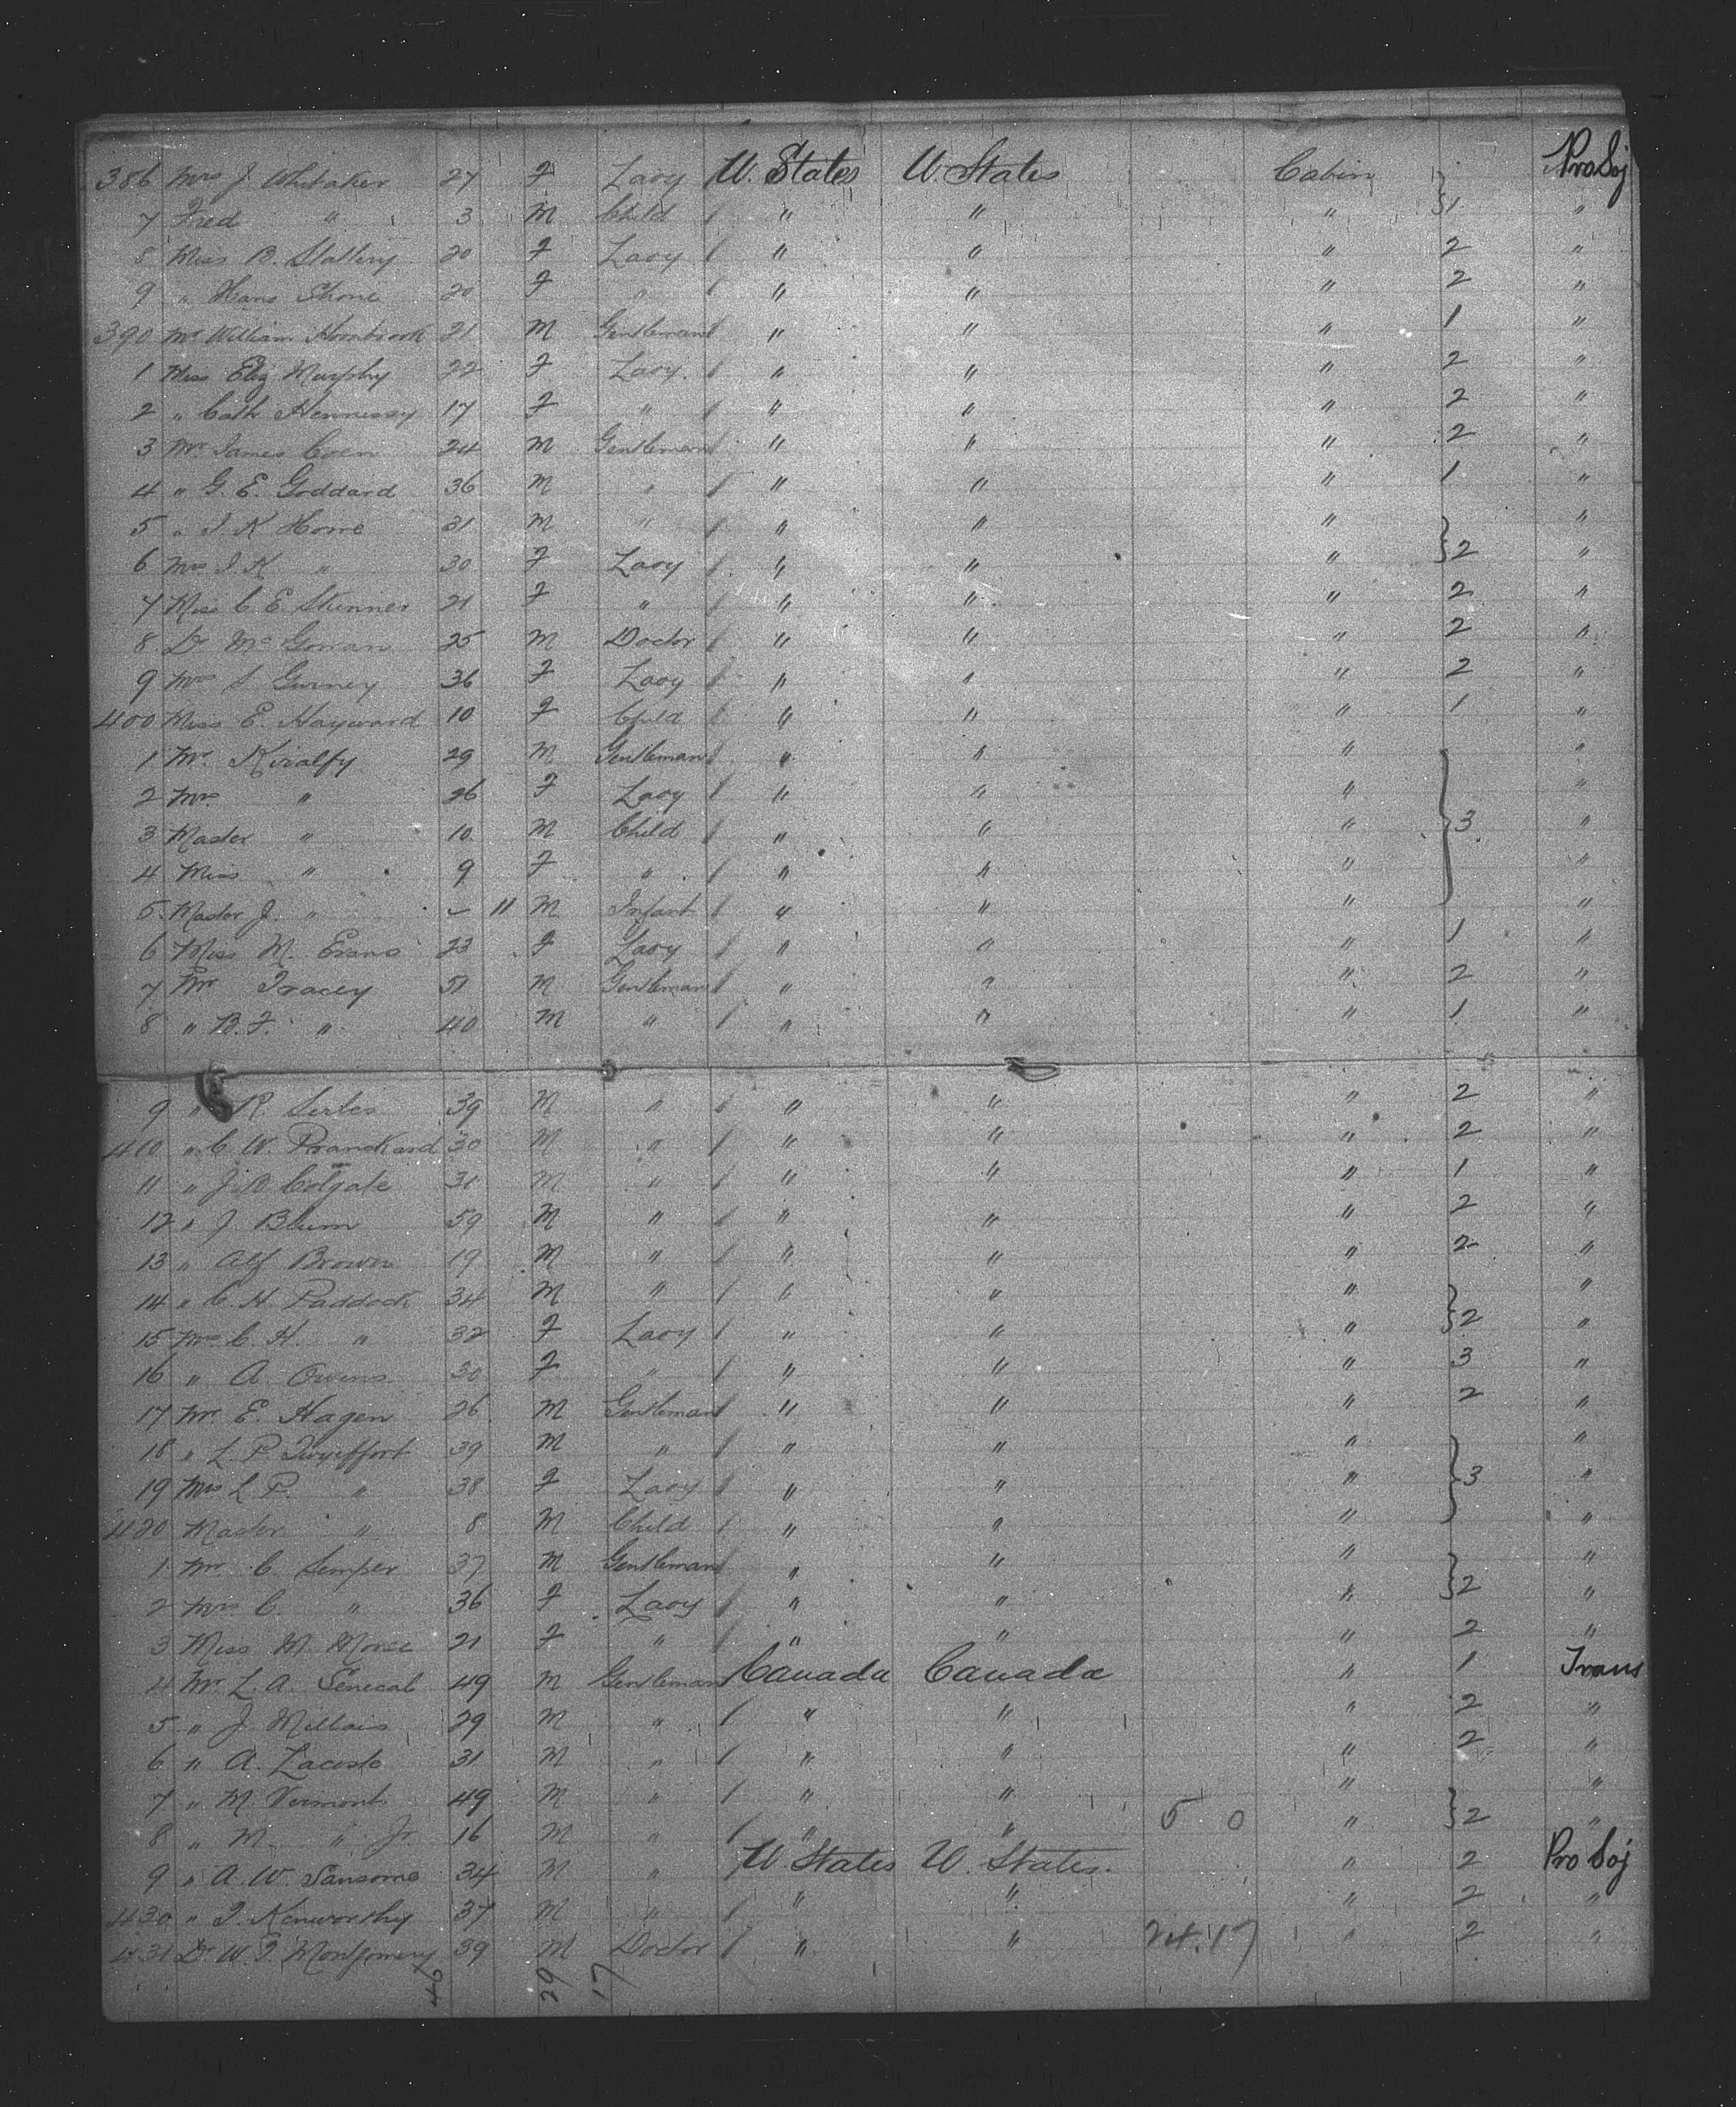 386 Mrs J. Whitaker 27 F Lady U. States U. States Cabin Pro Soj
7 Fred " 3 M Child / " " " } 1 "
8 Miss B. Slattery 20 F Lady / " " " 2 "
9 " Hans Shone 20 F " / " " " 2 "
390 Mr William Hornbrook 21 M Gentleman / " " " 1 "
1 Miss Eliz Murphy 22 F Lady / " " " 2 "
2 " Cath Hennessy 17 F " / " " " 2 "
3 Mr James Coen 24 M Gentleman / " " " 2 "
4 " G. E. Goddard 36 M " / " " " 1 "
5 " J. K Howe 31 M " / " " " "
6 Mrs J. K " 30 F Lady / " " " } 2 "
7 Miss C. E. Skinner 21 F " / " " " 2 "
8 Dr McGowan 25 M Doctor / " " " 2 "
9 Mrs S. Gurney 36 F Lady / " " " 2 "
400 Miss E. Hayward 10 F Child / " " " 1 "
1 Mr. Kiralfy 29 M Gentleman / " " " "
2 Mrs " 26 F Lady / " " " "
3 Master " 10 M Child / " " " } 3 "
4 Miss " 9 F " / " " " "
5 Master J. " - 11 M Infant / " " " "
6 Miss M. Evans 23 F Lady / " " " 1 "
7 Mr Tracey 51 M Gentleman / " " " 2 "
8 " B. F. " 40 M " / " " " 1 "
9 " R. 39 M " / " " " 2 "
410 " C. W. Pranckard 30 M " / " " " 2 "
11 " J. B. Colgate 31 M " / " " " 1 "
12 " J. Blum 59 M " / " " " 2 "
13 " Alf Brown 19 M " / " " " 2 "
14 " C. H. Paddock 34 M " / " " " "
15 Mrs C. H. " 32 F Lady / " " " } 2 "
16 " A. Owens 30 F " / " " " 3 "
17 Mr. E. Hagen 26 M Gentleman / " " " 2 "
18 " L. P. Twyeffort 39 M " / " " " "
19 Mrs L. P. " 38 F Lady / " " " } 3 "
420 Master " 8 M Child / " " " "
1 Mr C. Semper 37 M Gentleman / " " " "
2 Mrs C. " 36 F Lady / " " " } 2 "
3 Miss M. Morse 21 F " / " " " 2 "
4 Mr L. A. Senecal 49 M Gentleman Canada Canada " 1 Trans
5 " J. Millais 29 M " / " " " 2 "
6 " A. Lacoste 31 M " / " " " 2 "
7 " M. Vermont 49 M " / " " " "
8 " M. " Jr 16 M " / " " 5 0 " } 2 "
9 " A. W. Sansome 34 M " U. States U. States. " 2 Pro Soj
430 " J. Kenworthy 37 M " / " " " 2 "
431 Dr W. T. Montgomery 39 M Doctor / " " " 2 "
29 17